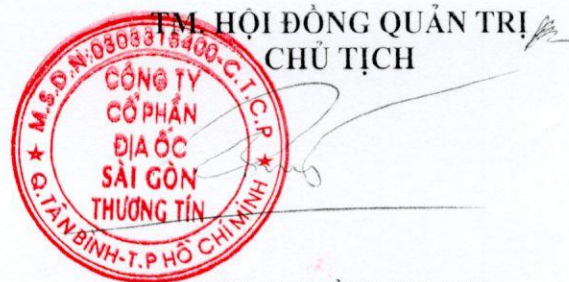 TM. HỘI ĐỒNG QUẢN TRỊ
CHỦ TỊCH
M.S.D.N:0303315400-C.T.C.P
CÔNG TY
CỔ PHẦN
ĐỊA ỐC
SÀI GÒN
THƯƠNG TÍN
Q.TÂN BÌNH-T.P HỒ CHÍ MINH